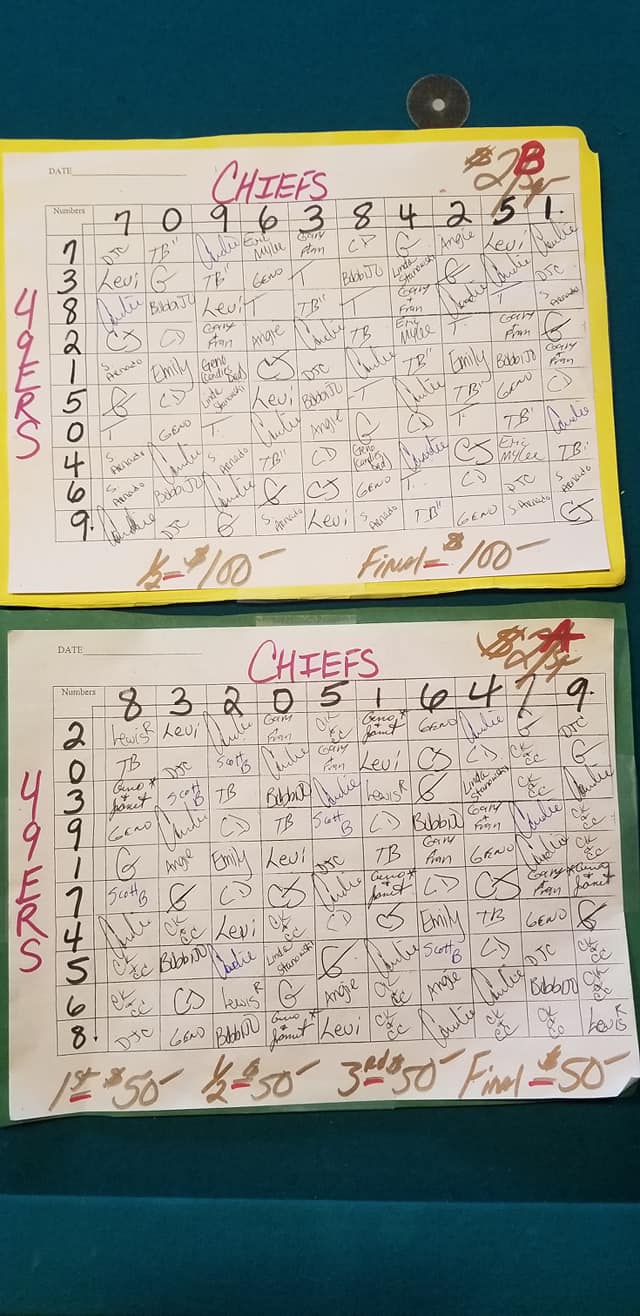 DATE
CHIEFS
$2/sq
B
Numbers 7 0 9 6 3 8 4 2 5 1.
49ERS
7 DJC TB" Candie Eric Mylee Gary + Fran CD G Angie Levi Candie
3 Levi G TB" GENO T BobbiJO Linda G Candie DJC
8 Candie BobbiJO Levi T TB" T Gary + Fran Candie T S
2 CJ CD Gary + Fran Angie Candie TB Eric Mylee T. Gary + Fran G
1 S Emily Geno Candies Dad CJ DJC Candie TB" Emily BobbiJO Gary + Fran
5 G CD Linda Levi BobbiJO T Candie TB" GENO CD
0 T GENO T. Candie Angie G CD T TB" Candie
4 S Candie S TB" CD Geno Candies Dad Candie CJ Eric Mylee TB"
6 S BobbiJO Candie G CJ GENO T. CD DJC S
9. Candie DJC G S Levi S TB" GENO S CJ
1/2 = $100- Final = $100-
DATE
CHIEFS
$2/sq
A
Numbers 8 3 2 0 5 1 6 4 7 9.
49ERS
2 Lewis R Levi Candie Gary + Fran CK + CC Geno + Janet * GENO Candie G DJC
0 TB DJC Scott B Candie Gary + Fran Levi CJ CD CK + CC G
3 Geno + Janet * Scott B TB BobbiJO Candie Lewis R G Linda CK + CC Candie
9 GENO Candie CD TB Scott B CD BobbiJO Gary + Fran Candie CK + CC
1 G Angie Emily Levi DJC TB Gary + Fran GENO Candie CK + CC
7 Scott B G CD CJ Candie Geno + Janet * CD CJ Gary + Fran Geno + Janet *
4 Candie CK + CC Levi CK + CC CD CJ Emily TB GENO G
5 CK + CC BobbiJO Candie Linda G Candie Scott B CD DJC CK + CC
6 CK + CC CD Lewis R G Angie CK + CC Angie Candie BobbiJO CK + CC
8. DJC GENO BobbiJO Geno + Janet * Levi CK + CC Candie CK + CC CK + CC Lewis R
1st = $50- 1/2 = $50- 3rd = $50- Final = $50-